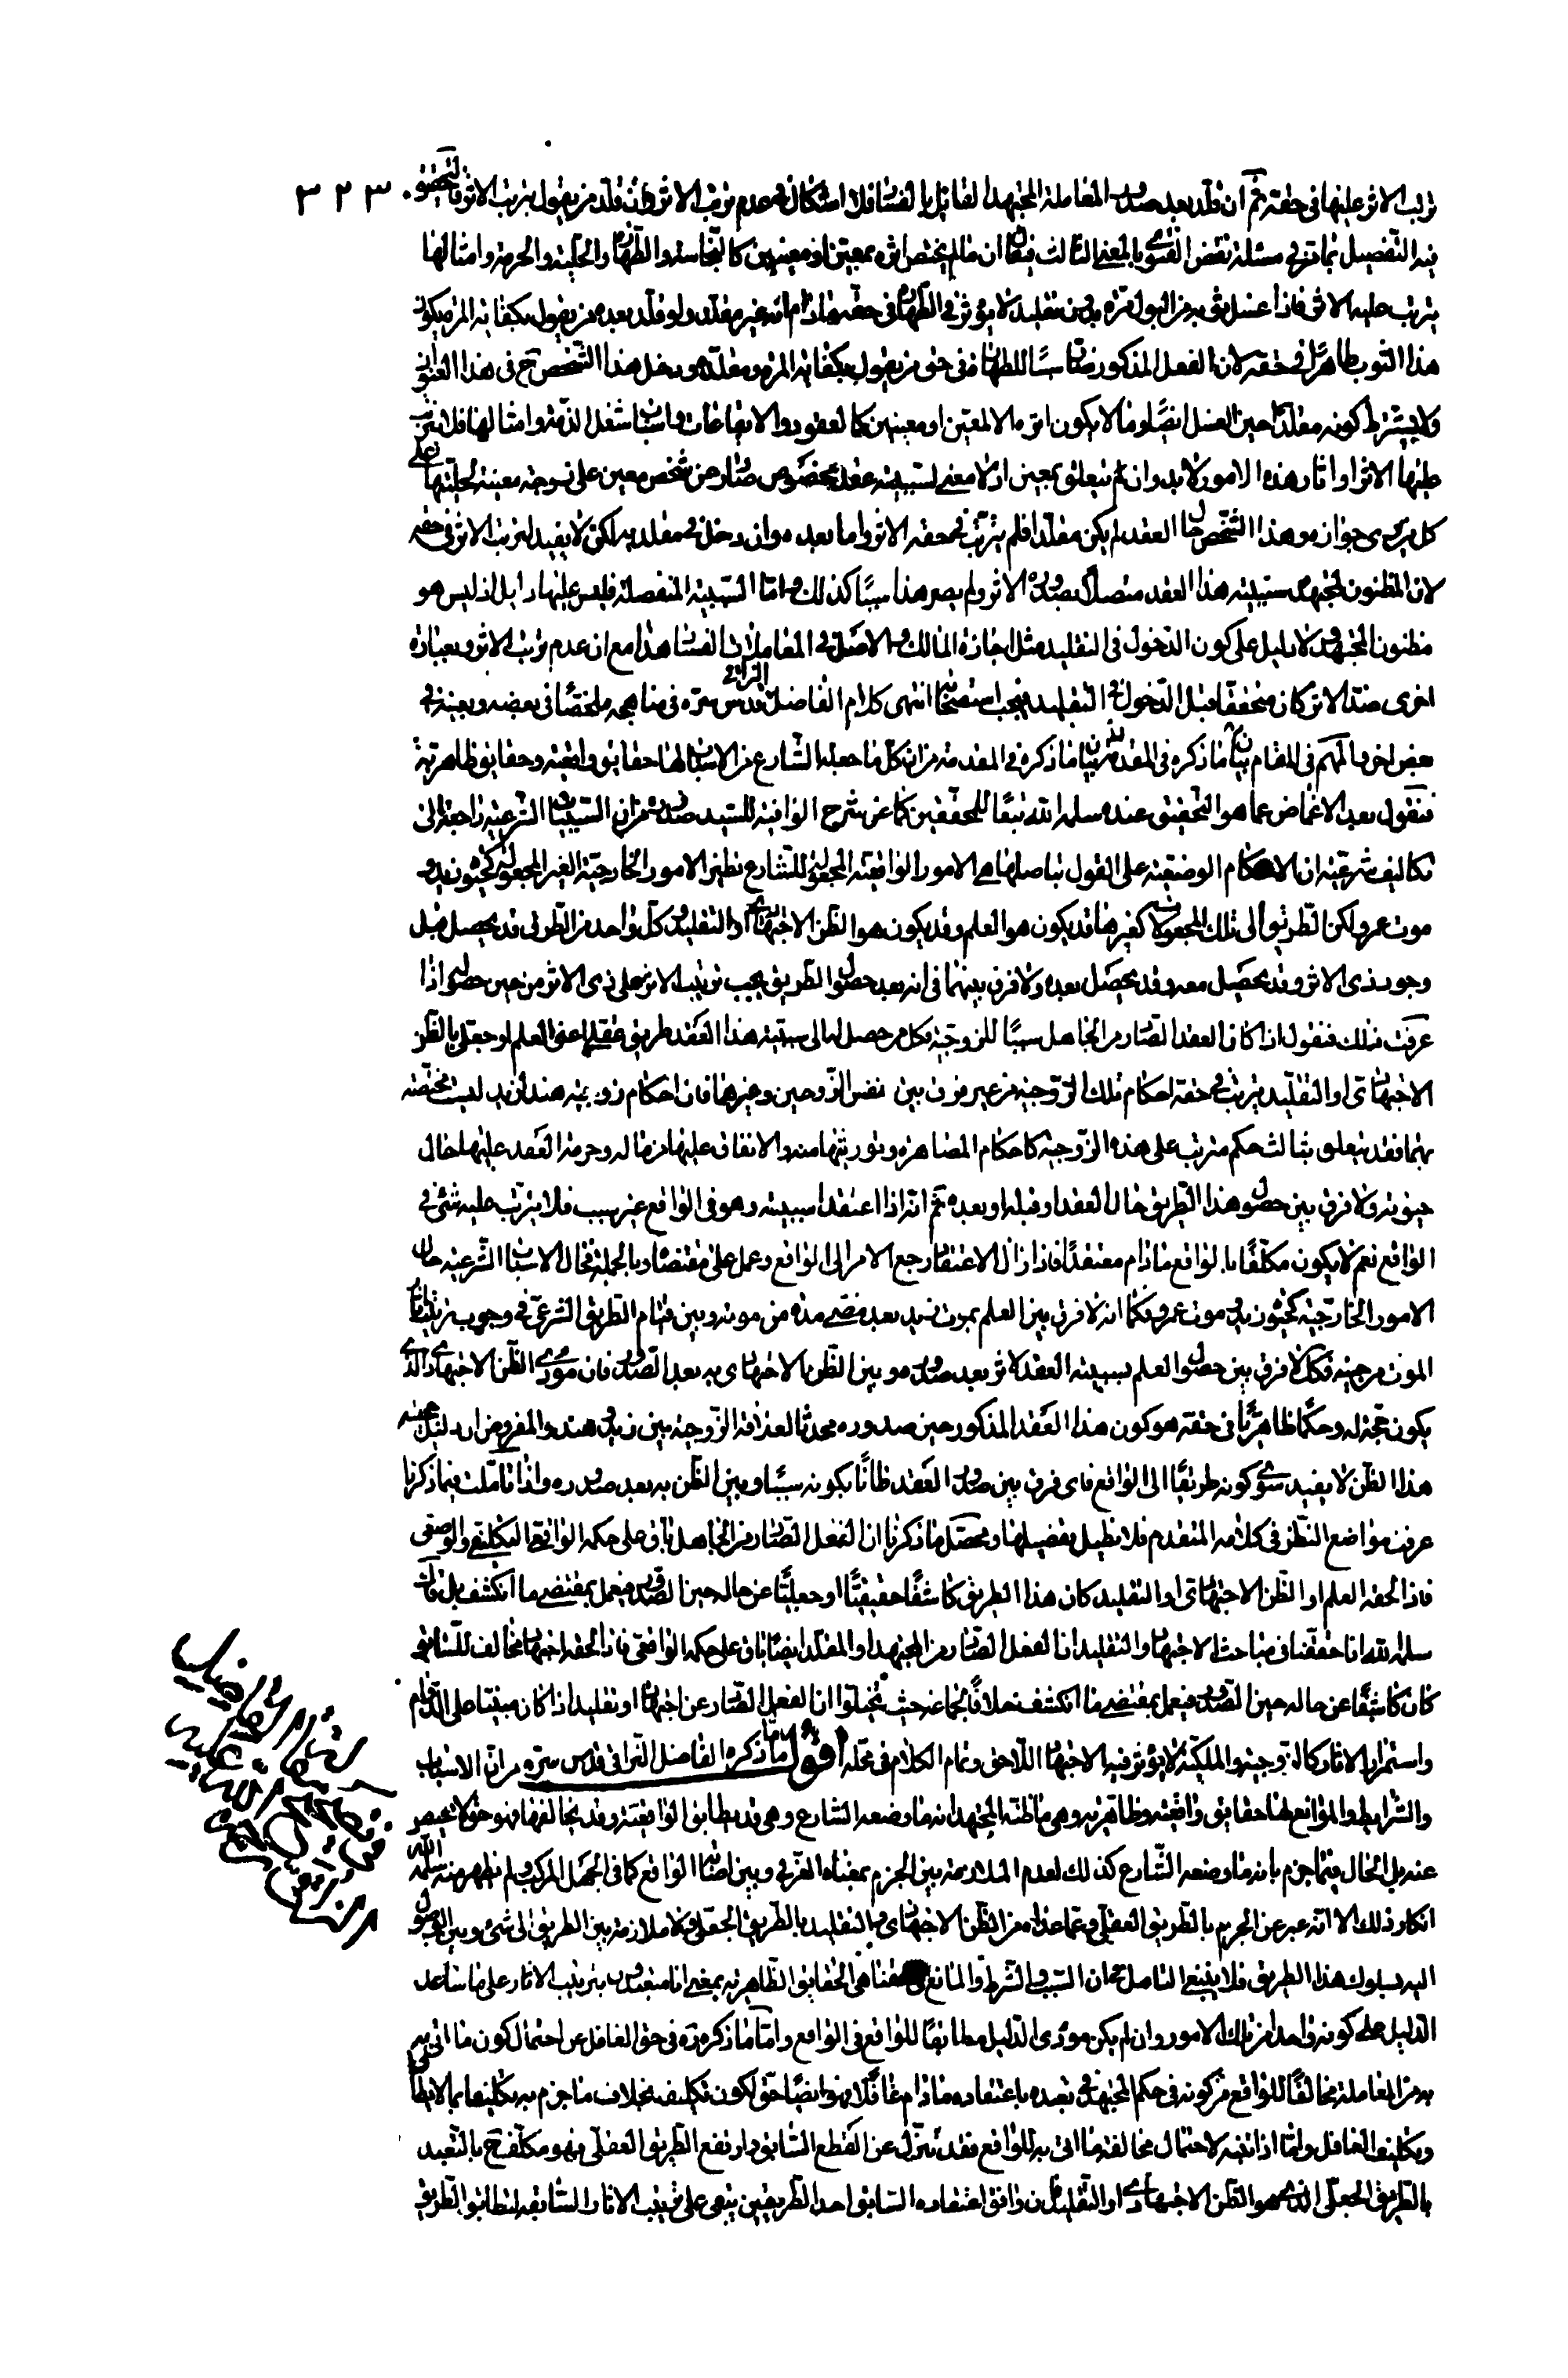 ترتب الاثر عليها في حقه ثم ان قلد بعد صدور المعاملة المجتهد القائل بالفساد فلا اشكال في عدم ترتب الاثر وان قلد من يقول بترتب الاثر فالتحقيق ٣٢٣
فيه التفصيل بما مر في مسئلة نقض الفتوى بالمعنى الثالث فيقال ان ما لم يختص اثره بمعين او معينين كالنجاسة والطهارة والحلية والحرمة وامثالها
يترتب عليه الاثر فاذا غسل ثوبه من البول مرة بدون تقليد لا يؤثر في الطهارة في حقه مادام انه غير مقلد ولو قلد بعده من يقول بكفاية المرة يكون
هذا الثوب طاهرا في حقه لان الفعل المذكور صار سببا للطهارة في حق من يقول بكفاية المرة ومقلديه ودخل هذا الشخص ح في هذا العنوان
ولا يشترط كونه مقلدا حين الغسل ايضا وما لا يكون اثره الا لمعين او معينين كالعقود والايقاعات واسباب شغل الذمة وامثالها فلا يترتب
عليها الاثر اذ اثار هذه الامور لابد وان تتعلق بمعين اذ لا معنى لسببية عقد مخصوص صادر من شخص معين على زوجة معينة لحليتها على
كل من يرى جوازه وهذا الشخص حال العقد لم يكن مقلدا فلم يترتب في حقه الاثر واما بعده وان دخل في مقلديه لكن لا يفيد لترتب الاثر في حقه
لان المظنون لمجتهده سببية هذا العقد متصلا بصدوره الاثر ولم يصر هذا سببا كذلك واما السببية المنفصلة فليس عليها دليل اذ ليس هو
مظنون المجتهد ولا دليل على كون الدخول في التقليد مثل اجازة المالك والاصل في المعاملات الفساد هذا مع ان عدم ترتب الاثر وبعبارة
اخرى ضد الاثر كان متحققا قبل الدخول في التقليد فيجب استصحابه انتهى كلام الفاضل النراقي قدس سره في مناهجه ملخصا في بعضه وبعينه في
بعض اخر والمهم في المقام بيان ما ذكره في المقدمتين بيان ما ذكره في المقدمة من ان كل ما جعله الشارع من الاسباب لها حقايق واقعية وحقايق ظاهرية
فنقول بعد الاغماض عما هو التحقيق عنده سلمه الله تبعا للمحققين كما عن شرح الوافية للسيد صدر من ان السببيات الشرعية راجعة الى
تكاليف شرعية ان الاحكام الوضعية على القول بتاصلها هي الامور الواقعية المجعولة للشارع نظير الامور الخارجية الغير المجعولة كحيوة زيد و
موت عمرو ولكن الطريق الى تلك المجعولات كغيرها قد يكون هو العلم وقد يكون هو الظن الاجتهادي او التقليد وكل واحد من الطرق قد يحصل قبل
وجود ذي الاثر وقد يحصل معه وقد يحصل بعده ولا فرق بينهما في انه بعد حصول الطريق يجب ترتيب الاثر على ذي الاثر من حين حصوله اذا
عرفت ذلك فنقول اذا كان العقد الصادر من الجاهل سببا للزوجية فكل من حصل له الى سببية هذا العقد طريق عقلي اعني العلم او جعلي بالظن
الاجتهادي او التقليد يترتب في حقه احكام تلك الزوجية من غير فرق بين نفس الزوجين وغيرهما فان احكام زوجية هند لزيد ليست مختصة
بهما فقد يتعلق بثالث حكم مترتب على هذه الزوجية كاحكام المصاهرة وتوريثها منه والانفاق عليها من ماله وحرمة العقد عليها حال
حيوته ولا فرق بين حصول هذا الطريق حال العقد او قبله او بعده ثم انه اذا اعتقد السببية وهو في الواقع غير سبب فلا يترتب عليه شيء في
الواقع نعم لا يكون مكلفا بالواقع مادام معتقدا فاذا زال الاعتقاد رجع الامر الى الواقع وعمل على مقتضاه وبالجملة فحال الاسباب الشرعية حال
الامور الخارجية كحيوة زيد وموت عمرو فكما انه لا فرق بين العلم بموت زيد بعد مضي مدة من موته وبين قيام الطريق الشرعي في وجوب ترتيب اثار
الموت من حينه فكذا لا فرق بين حصول العلم بسببية العقد لاثر بعد صدوره وبين الظن بالاجتهادي به بعد الصدور فان مؤدى الظن الاجتهادي الذي
يكون حجة له وحكما ظاهريا في حقه هو كون هذا العقد المذكور حين صدوره محدثا لعلاقة الزوجية بين زيد وهند والمفروض ان دليل حجية
هذا الظن لا يفيد سوى كونه طريقا الى الواقع فاي فرق بين صدور العقد ظانا بكونه سببا وبين الظن به بعد صدوره واذا تاملت فيما ذكرنا
عرفت مواضع النظر في كلامه المتقدم فلا نطيل بتفصيلها ومحصل ما ذكرنا ان الفعل الصادر من الجاهل باق على حكمه الواقعي التكليفي والوضعي
فاذا لحقه العلم او الظن الاجتهادي او التقليد كان هذا الطريق كاشفا حقيقيا او جعليا عن حاله حين الصدور فيعمل بمقتضى ما انكشف بل قال
سلمه الله انا حققنا في مباحث الاجتهاد والتقليد ان الفعل الصادر من المجتهد او المقلد ايضا باق على حكمه الواقعي فاذا لحقه اجتهاد مخالف للسابق
كان كاشفا عن حاله حين الصدور فيعمل بمقتضى ما انكشف خلافا لجماعة حيث تخيلوا ان الفعل الصادر عن اجتهاد او تقليد اذا كان مبنيا على الدوام
واستمرار الاثار كالزوجية والملكية لا يؤثر فيه الاجتهاد اللاحق وتمام الكلام في محله اقول ما ذكره الفاضل النراقي قدس سره من ان الاسباب
والشرايط والموانع لها حقايق واقعية وظاهرية وهي ما ظنه المجتهد انه ما وضعه الشارع وهي قد يطابق الواقعية وقد يخالفها فهو حق لا محيص
عنه بل الحال فيما جزم بانه ما وضعه الشارع كذلك لعدم الملازمة بين الجزم بمعناه العرفي وبين اصابة الواقع كما في الجهل المركب ولم يظهر منه سلمه الله
انكار ذلك الا انه عبر عن الجزم بالطريق العقلي وعما عداه من الظن الاجتهادي والتقليد بالطريق الجعلي ولا ملازمة بين الطريق الى شيء وبين الوصول
اليه بسلوك هذا الطريق فلا ينبغي التامل في ان السبب والشرط والمانع في حقنا هي الحقايق الظاهرية بمعنى انا متعبدون بترتيب الاثار على ما ساعد
الدليل على كونه واحدا من تلك الامور وان لم يكن مؤدى الدليل مطابقا للواقع في الواقع واما ما ذكره ره في حق الغافل عن احتمال كون ما اتى به
من المعاملة مخالفا للواقع من كونه في حكم المجتهد في تعبده باعتقاده مادام غافلا فهو ايضا حق لكون تكليفه بخلاف ما جزم به تكليفا بما لا يطاق
وتكليف الغافل واما اذا تنبه لاحتمال مخالفة ما اتى به للواقع فقد تنزل عن القطع السابق وارتفع الطريق العقلي فهو مكلف ح بالتعبد
بالطريق الجعلي الذي هو الظن الاجتهادي او التقليد فان وافق اعتقاده السابق احد الطريقين يبقى على ترتيب الاثار السابقة لتطابق الطريق